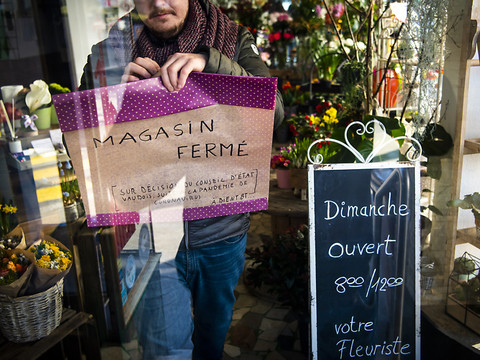 MAGASIN
FERMÉ
[SUR DÉCISION DU CONSEIL D'ÉTAT
VAUDOIS, SUITE À LA PANDÉMIE DE
CORONAVIRUS]
À BIENTÔT
Dimanche
ouvert
8⁰⁰/12⁰⁰
votre
Fleuriste